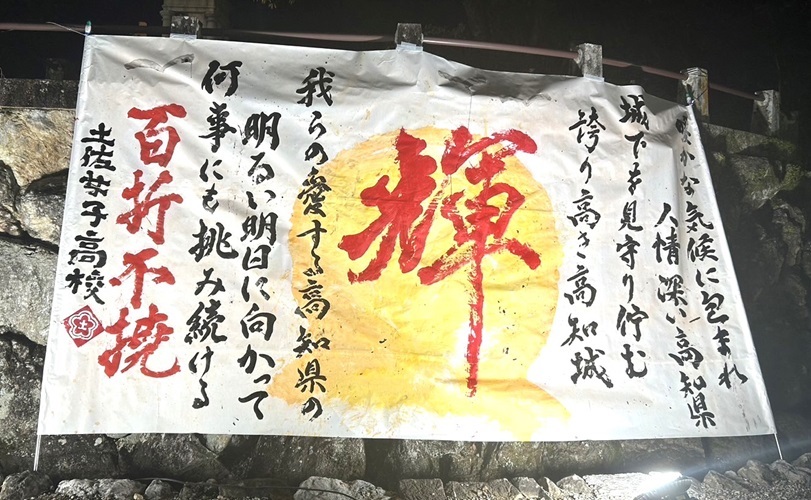 暖かな気候に包まれ
人情深い高知県
城下を見守り佇む
誇り高き高知城
輝
我らの愛する高知県の
明るい明日に向かって
何事にも挑み続ける
百折不撓
土佐女子高校